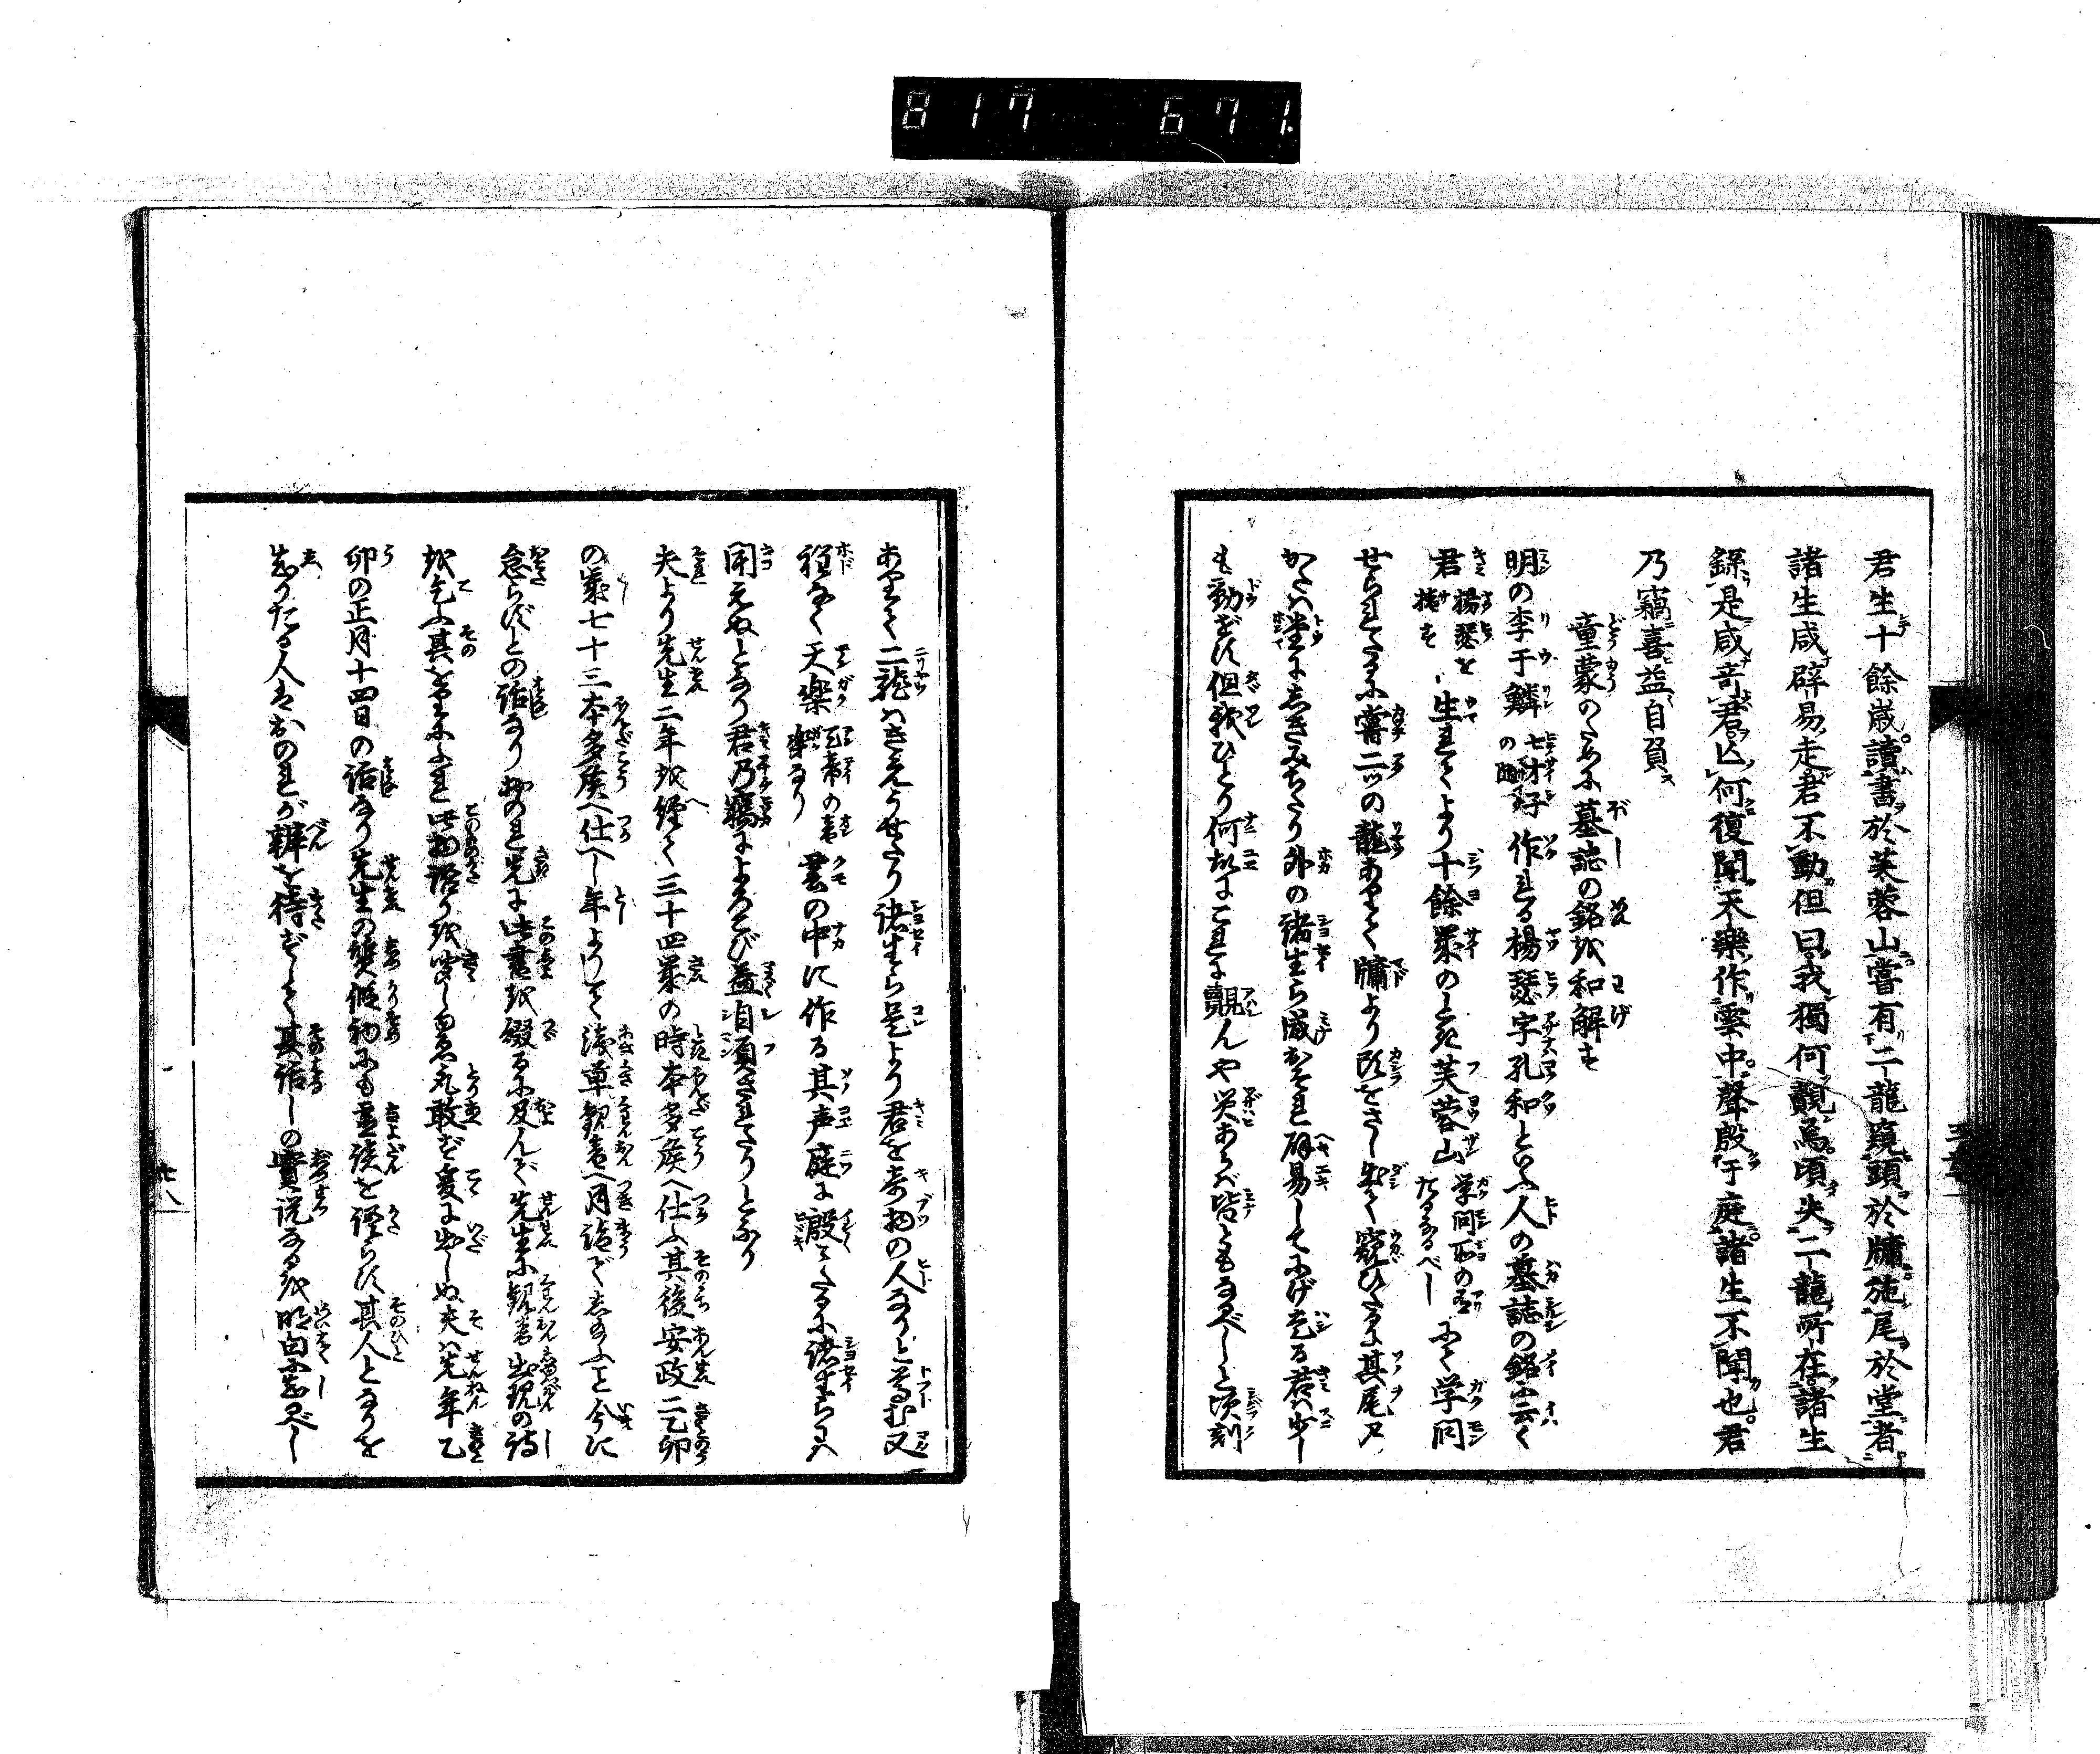 817 671.
君生十餘歲讀書於芙蓉山嘗有二龍窺頭於牗施尾於堂者
諸生咸辟易走君不動但曰我獨何覿焉頃失二龍所在諸生
繇是咸奇君亡何復聞天樂作雲中聲殷于庭諸生不聞也君
乃竊喜益自負
童蒙のために墓誌の銘を和解す
明の李于鱗七才子の随一作れる楊瑟字孔和といふ人の墓誌の銘に云く
君楊瑟を生れてより十餘歳のとき芙蓉山学問所の にて学問
せられたるに嘗二ッの龍ありて牗より頭をさし出て窺ひたるに其尾又
かたハ堂にしきみちたり外の諸生ら咸おそれ辟易してにげ走る君ハ少し
も動ぜず但我ひとり何故にこれに覿んや災あらバ皆ともなるべしと頃刻
ありて二龍ハきえうせたり諸生ら是より君を奇物の人なりと尊む又
程なく天樂 楽なり雲の中に作る其声庭に殷てたるに諸生らにハ
聞えぬとなり君乃竊によろこび益自負されたりとなり
夫より先生二年を経て三十四歳の時本多侯へ仕ふ其後安政二乙卯
の歳七十三本多侯へ仕へし年よりして浅草観音へ月詣でしたまふこと今に
怠らずとの話なり おのれ先に此書を綴るに及んで先生に観音出現の詩
を乞ふ其をりにふれ此物語りを聞し まゝ取敢ず爰に出しぬ夫ハ先年乙
卯の正月十四日の話なり先生の質仮初にも虚談を語らず其人となりを
知りたる人はおのれが辨を待ずして其話しの實説なるを明白に知べし
七八